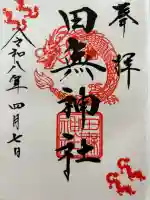 奉拝
田無神社
令和八年四月七日